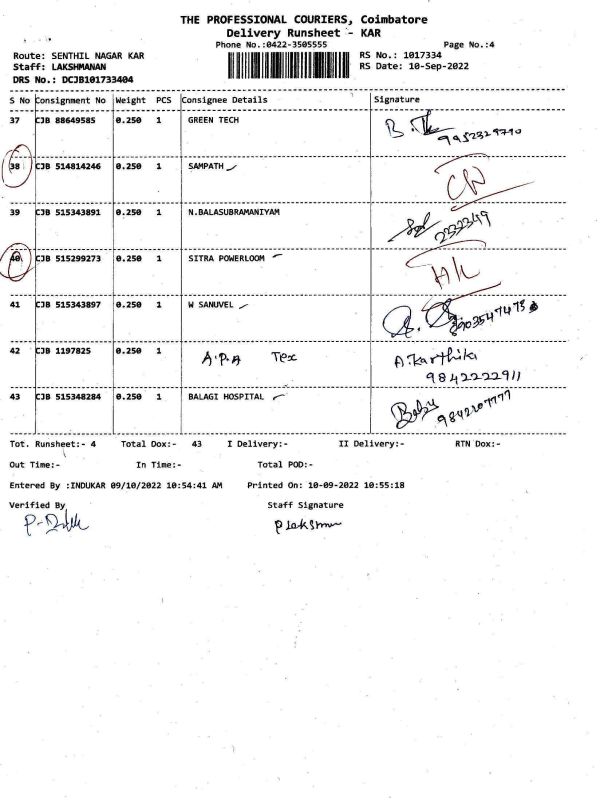 THE PROFESSIONAL COURIERS, Coimbatore
Delivery Runsheet - KAR
Phone No.:0422-3505555 Page No.:4
Route: SENTHIL NAGAR KAR RS No.: 1017334
Staff: LAKSHMANAN RS Date: 10-Sep-2022
DRS No.: DCJB101733404
S No Consignment No Weight PCS Consignee Details Signature
37 CJB 88649585 0.250 1 GREEN TECH
9952329790
38 CJB 514814246 0.250 1 SAMPATH
39 CJB 515343891 0.250 1 N.BALASUBRAMANIYAM
2232349
40 CJB 515299273 0.250 1 SITRA POWERLOOM
41 CJB 515343897 0.250 1 W SANUVEL
42 CJB 1197825 0.250 1 A.P.A Tex A.Karthika
9842222911
43 CJB 515348284 0.250 1 BALAGI HOSPITAL Babu
9842207777
Tot. Runsheet:- 4 Total Dox:- 43 I Delivery:- II Delivery:- RTN Dox:-
Out Time:- In Time:- Total POD:-
Entered By :INDUKAR 09/10/2022 10:54:41 AM Printed On: 10-09-2022 10:55:18
Verified By Staff Signature